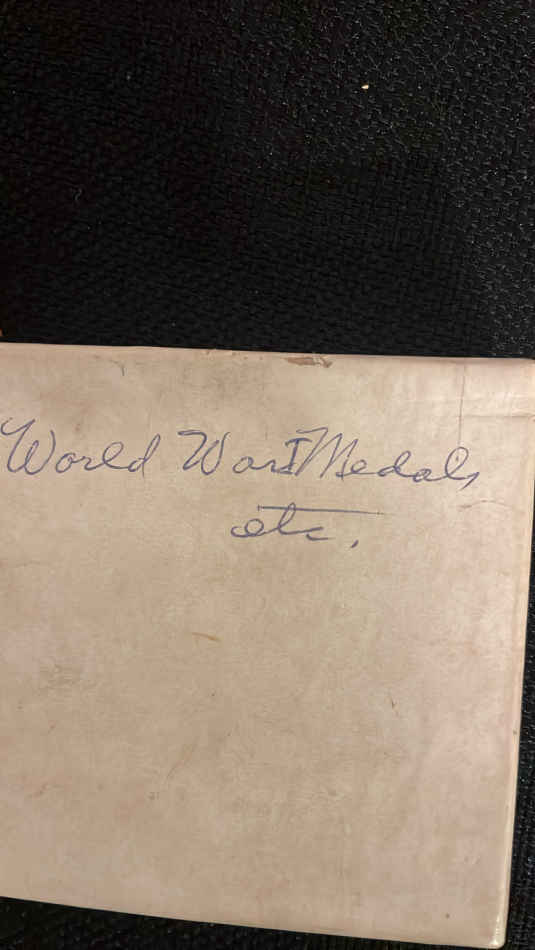 World War I Medals
etc.